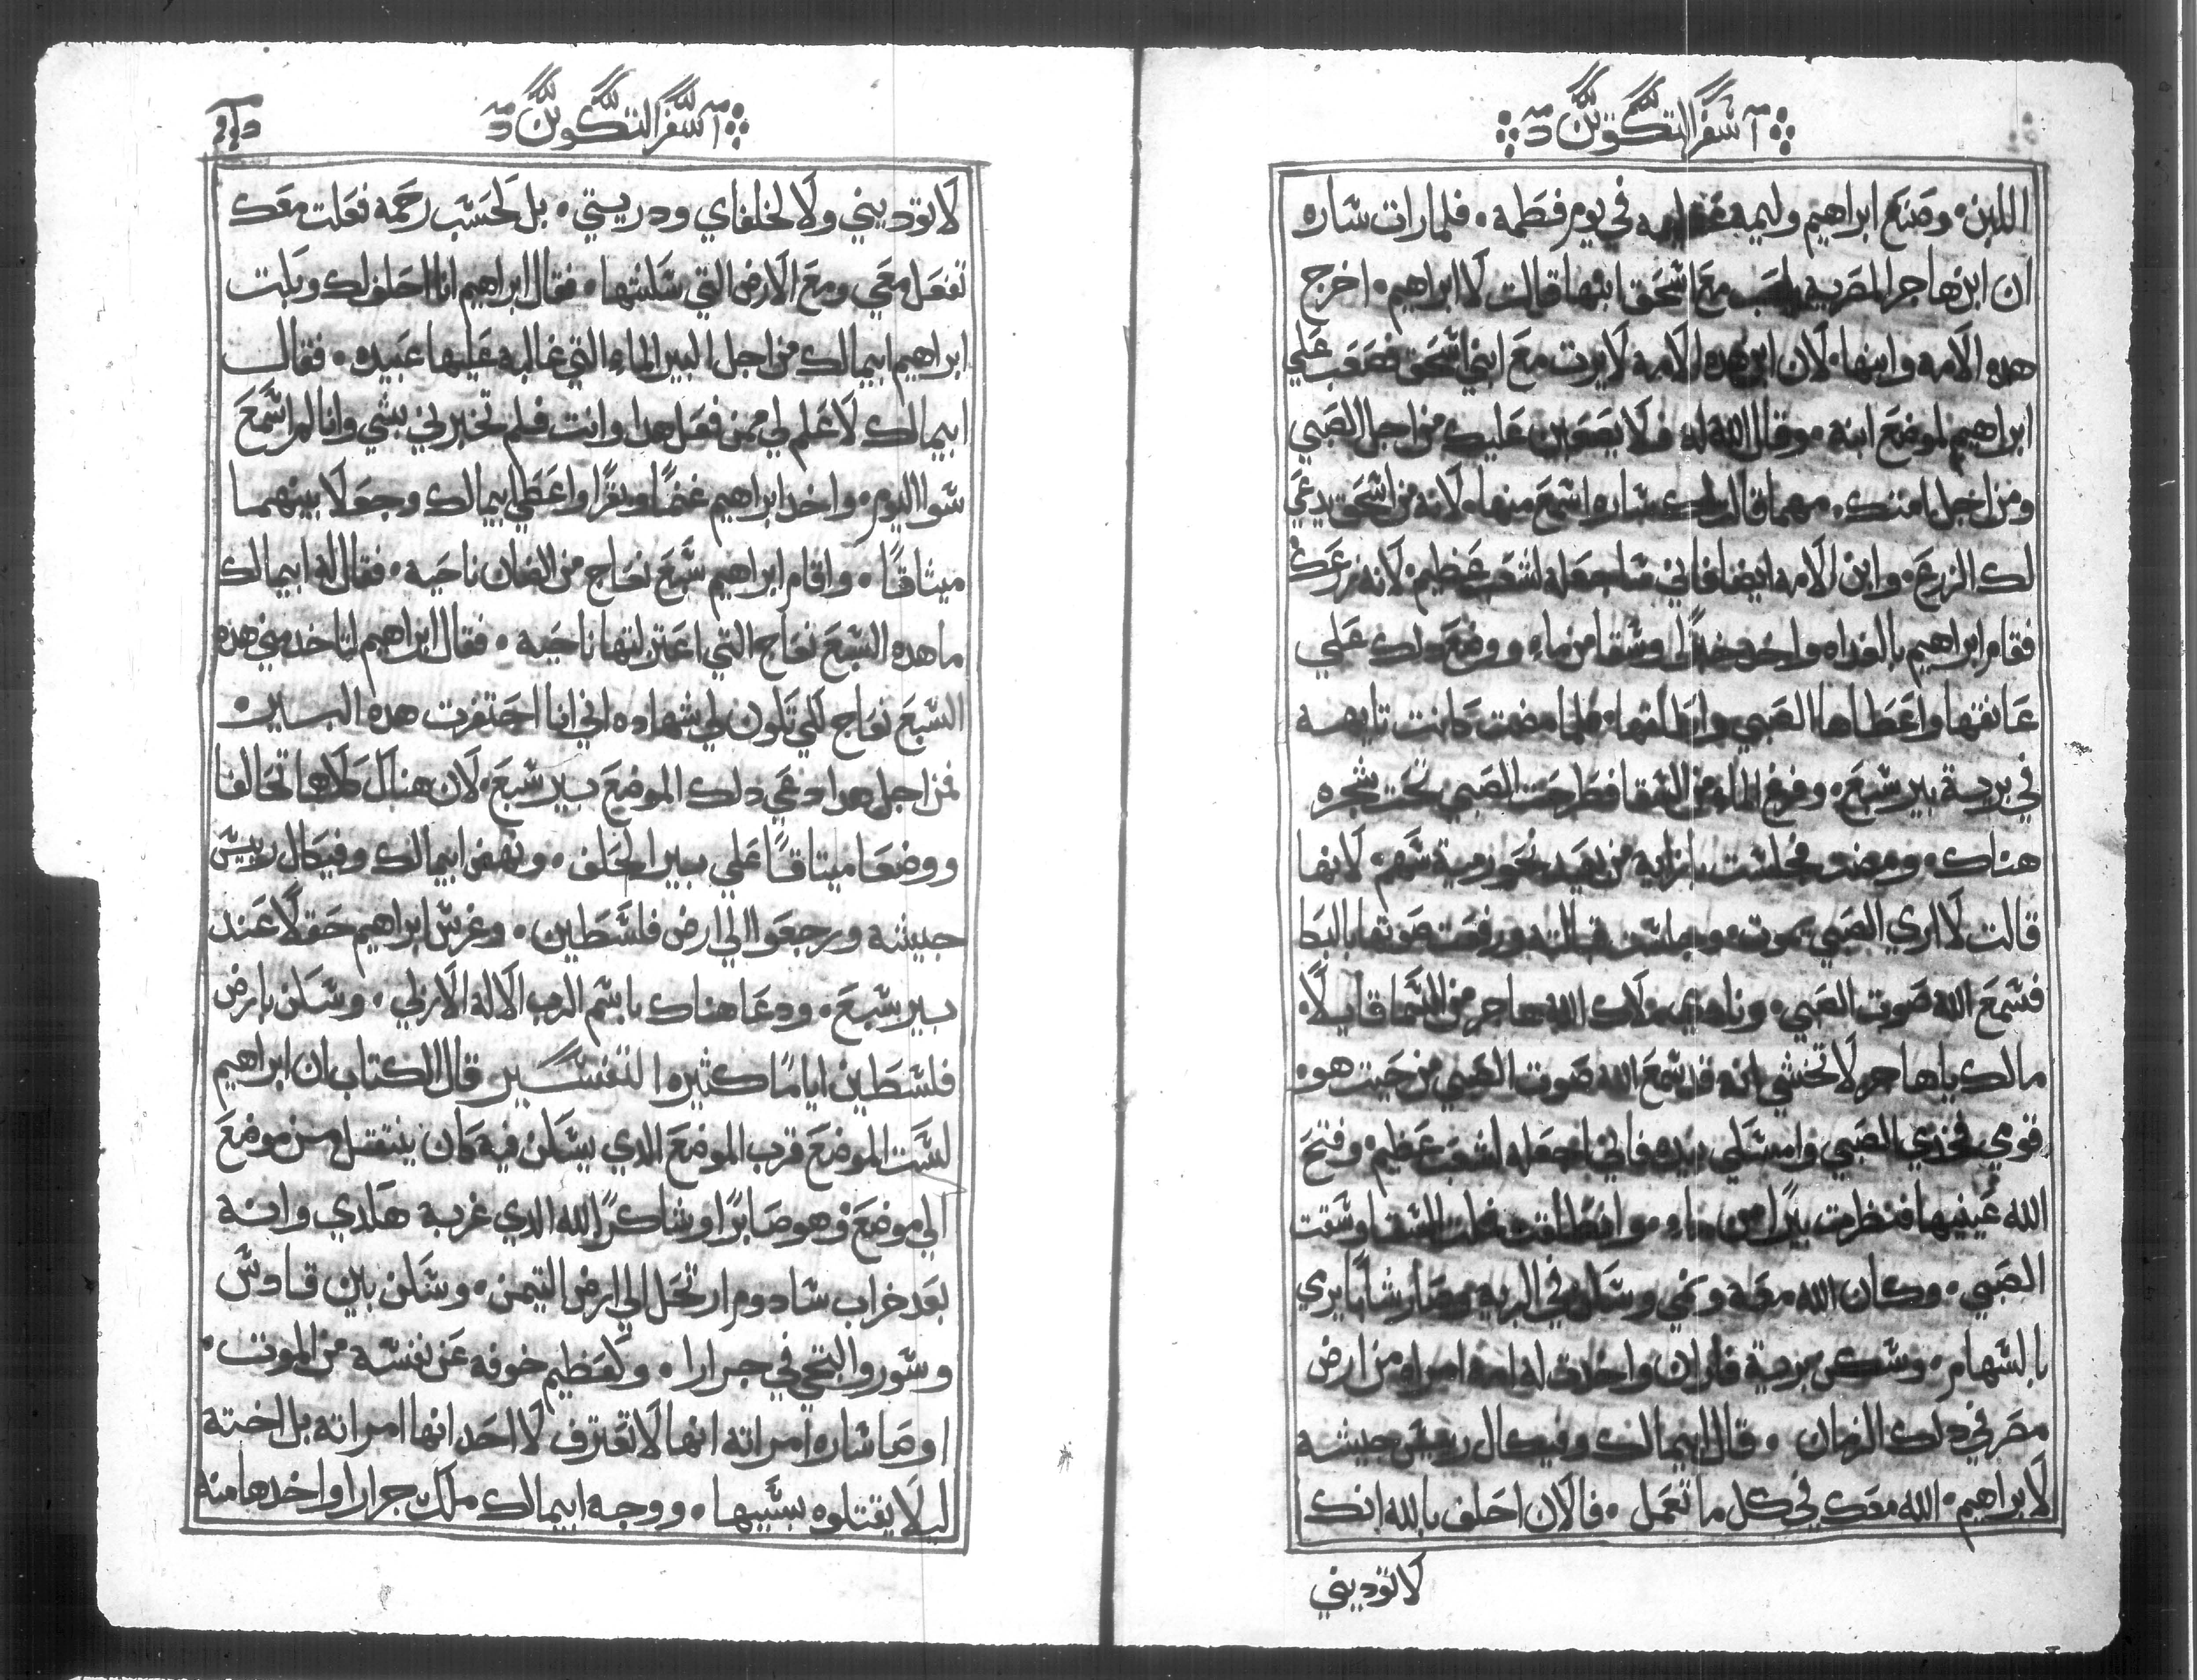 سفر التكوين
اللبن٠ وصنع ابراهيم وليمه عظيمه في يوم فطمه٠ فلما رات ساره
ان ابن هاجر المصريه يلعب مع اسحق ابنها قالت لابراهيم٠ اخرج
هده الامه وابنها٠ لان ابن هده الامه لا يرت مع ابني اسحق فصعب علي
ابراهيم لموضع ابنه٠ وقال الله له فلا يصعبن عليك من اجل الصبي
ومن اجل امتك٠ مهما قالت لك ساره اسمع منها٠ لانه من اسحق يدعي
لك الزرع٠ وابن الامه ايضا فاني ساجعله لشعب عظيم٠ لانه زرعك
فقام ابراهيم بالغداه واخد خبزًا وسقا من ماء ووضع دلك علي
عاتقها واعطاها الصبي واطلقها٠ فلما مضت كانت تايهه
في برية بير سبع٠ وفرغ الماء من السقا فطرحت الصبي تحت شجره
هناك٠ ومضت فجلست بازايه من بعيد نحو رمية سهم٠ لانها
قالت لا اري الصبي يموت٠ وجلست قبالته ورفعت صوتها بالبكا
فسمع الله صوت الصبي٠ ونادي ملاك الله هاجر من السما قايلًا٠
مالك ياهاجر لا تخشي انه قد سمع الله صوت الصبي من حيت هو٠
قومي فخدي الصبي وامسكي بيده فاني اجعله لشعب عظيم٠ وفتح
الله عينيها فنظرت بيرًا من ماء٠ وانطلقت فملت السقا وسقت
الصبي٠ وكان الله معه ونمي وسكن في البريه وصار شابا يري
بالسهام٠ وسكن برية فاران واخدت له امه امراه من ارض
مصر في دلك الزمان٠ قال ابيمالك وفيكال رييس جيشه
لابراهيم٠ الله معك في كل ما تعمل٠ فالان احلف بالله انك
لا تؤديني
سفر التكوين
لا تؤديني ولا لخلفاي ودريتي٠ بل كحسب رحمه فعلت معك
تفعل معي ومع الارض التي سكنتها٠ فقال ابراهيم انا احلف لك وبكت
ابراهيم ابيمالك من اجل البير الماء التي غالبه عليها عبيده٠ فقال
ابيمالك لا علم لي ممن فعل هدا وانت فلم تخبرني بشي وانا لم اسمع
سوا اليوم٠ واخد ابراهيم غنمًا وبقرًا واعطي ابيمالك وجعلا بينهما
ميثاقًا٠ واقام ابراهيم سبع نعاج من الضان ناحيه٠ فقال له ابيمالك
ما هده السبع نعاج التي اعتزلتها ناحيه٠ فقال ابراهيم لتاخد مني هده
السبع نعاج لكي تكون لي شهاده اني انا احتفرت هده البير٠
فمن اجل هدا دعي دلك الموضع بير سبع٠ لان هناك كلاهما تحالفا
ووضعا ميتاقًا علي بير الحلف٠ ونهض ابيمالك وفيكال رييس
جيشه ورجعوا الي ارض فلسطين٠ وغرس ابراهيم حقلًا عند
بير سبع٠ ودعا هناك باسم الرب الاله الازلي٠ وسكن بارض
فلسطين ايامًا كثيره التفسير قال الكتاب ان ابراهيم
لست الموضع قرب الموضع الدي يسكن فيه كان ينتقل من موضع
الي موضع وهو صابرًا وشاكرًا لله الدي غربه هكدي وانه
بعد خراب سادوم ارتحل الي ارض التيمن٠ وسكن بين قادس
وسور والتجي في جرارا٠ ولعظيم خوفه عن نفسه من الموت٠
اوصا ساره امراته انها لا تعترف لا احد انها امراته بل اخته
ليلا يقتلوه بسببها٠ ووجه ابيمالك ملك جرارا واخدها منه